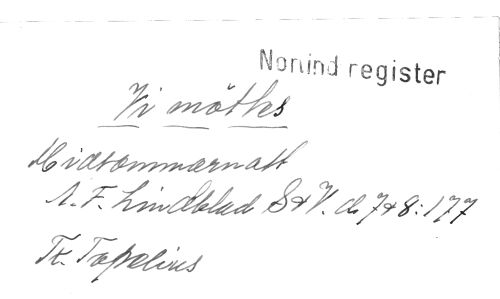 Norlind register
Vi möttes
Midsommarnatt
A. F. Lindblad S&V. d. 7&8:177
Tx. Topelius